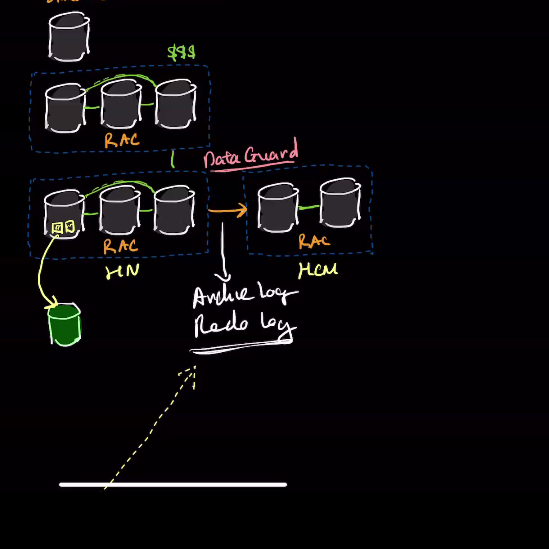 $$$
RAC
Data Guard
RAC
HN
RAC
HCM
Archive log
Redo log